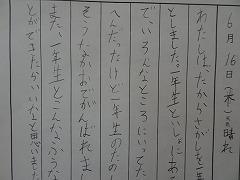 6月16日(木)天気晴れ
わたしは、たからさがしを
としました。一年生といっしょにあ
でいろんなところにいってた
へんだったけど一年生のたの
そうなかおでがんばれまし
また、一年生とこんなふうな
とができたらいいなと思いました